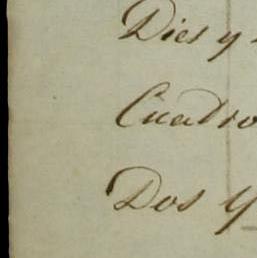 Dies y
Cuadro
Dos y